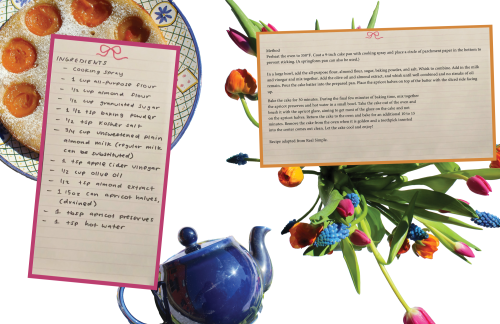 INGREDIENTS
- Cooking spray
- 1 cup all-purpose flour
- 1/2 cup almond flour
- 1/2 cup granulated sugar
- 1 1/2 tsp baking powder
- 1/2 tsp Kosher salt
- 3/4 cup unsweetened plain
almond milk (regular milk
can be substituted)
- 2 tsp apple cider vinegar
- 1/3 cup olive oil
- 1/2 tsp almond extract
- 1 15oz can apricot halves,
(drained)
- 2 tbsp apricot preserves
- 2 tsp hot water
Method
Preheat the oven to 350°F. Coat a 9-inch cake pan with cooking spray and place a circle of parchment paper in the bottom to
prevent sticking. (A springform pan can also be used.)
In a large bowl, add the all-purpose flour, almond flour, sugar, baking powder, and salt. Whisk to combine. Add in the milk
and vinegar and mix together. Add the olive oil and almond extract, and whisk until well combined and no streaks of oil
remain. Pour the cake batter into the prepared pan. Place the apricot halves on top of the batter with the sliced side facing
up.
Bake the cake for 30 minutes. During the final five minutes of baking time, mix together
the apricot preserves and hot water in a small bowl. Take the cake out of the oven and
brush it with the apricot glaze, aiming to get most of the glaze on the cake and not
on the apricot halves. Return the cake to the oven and bake for an additional 10 to 15
minutes. Remove the cake from the oven when it is golden and a toothpick inserted
into the center comes out clean. Let the cake cool and enjoy!
Recipe adapted from Real Simple.